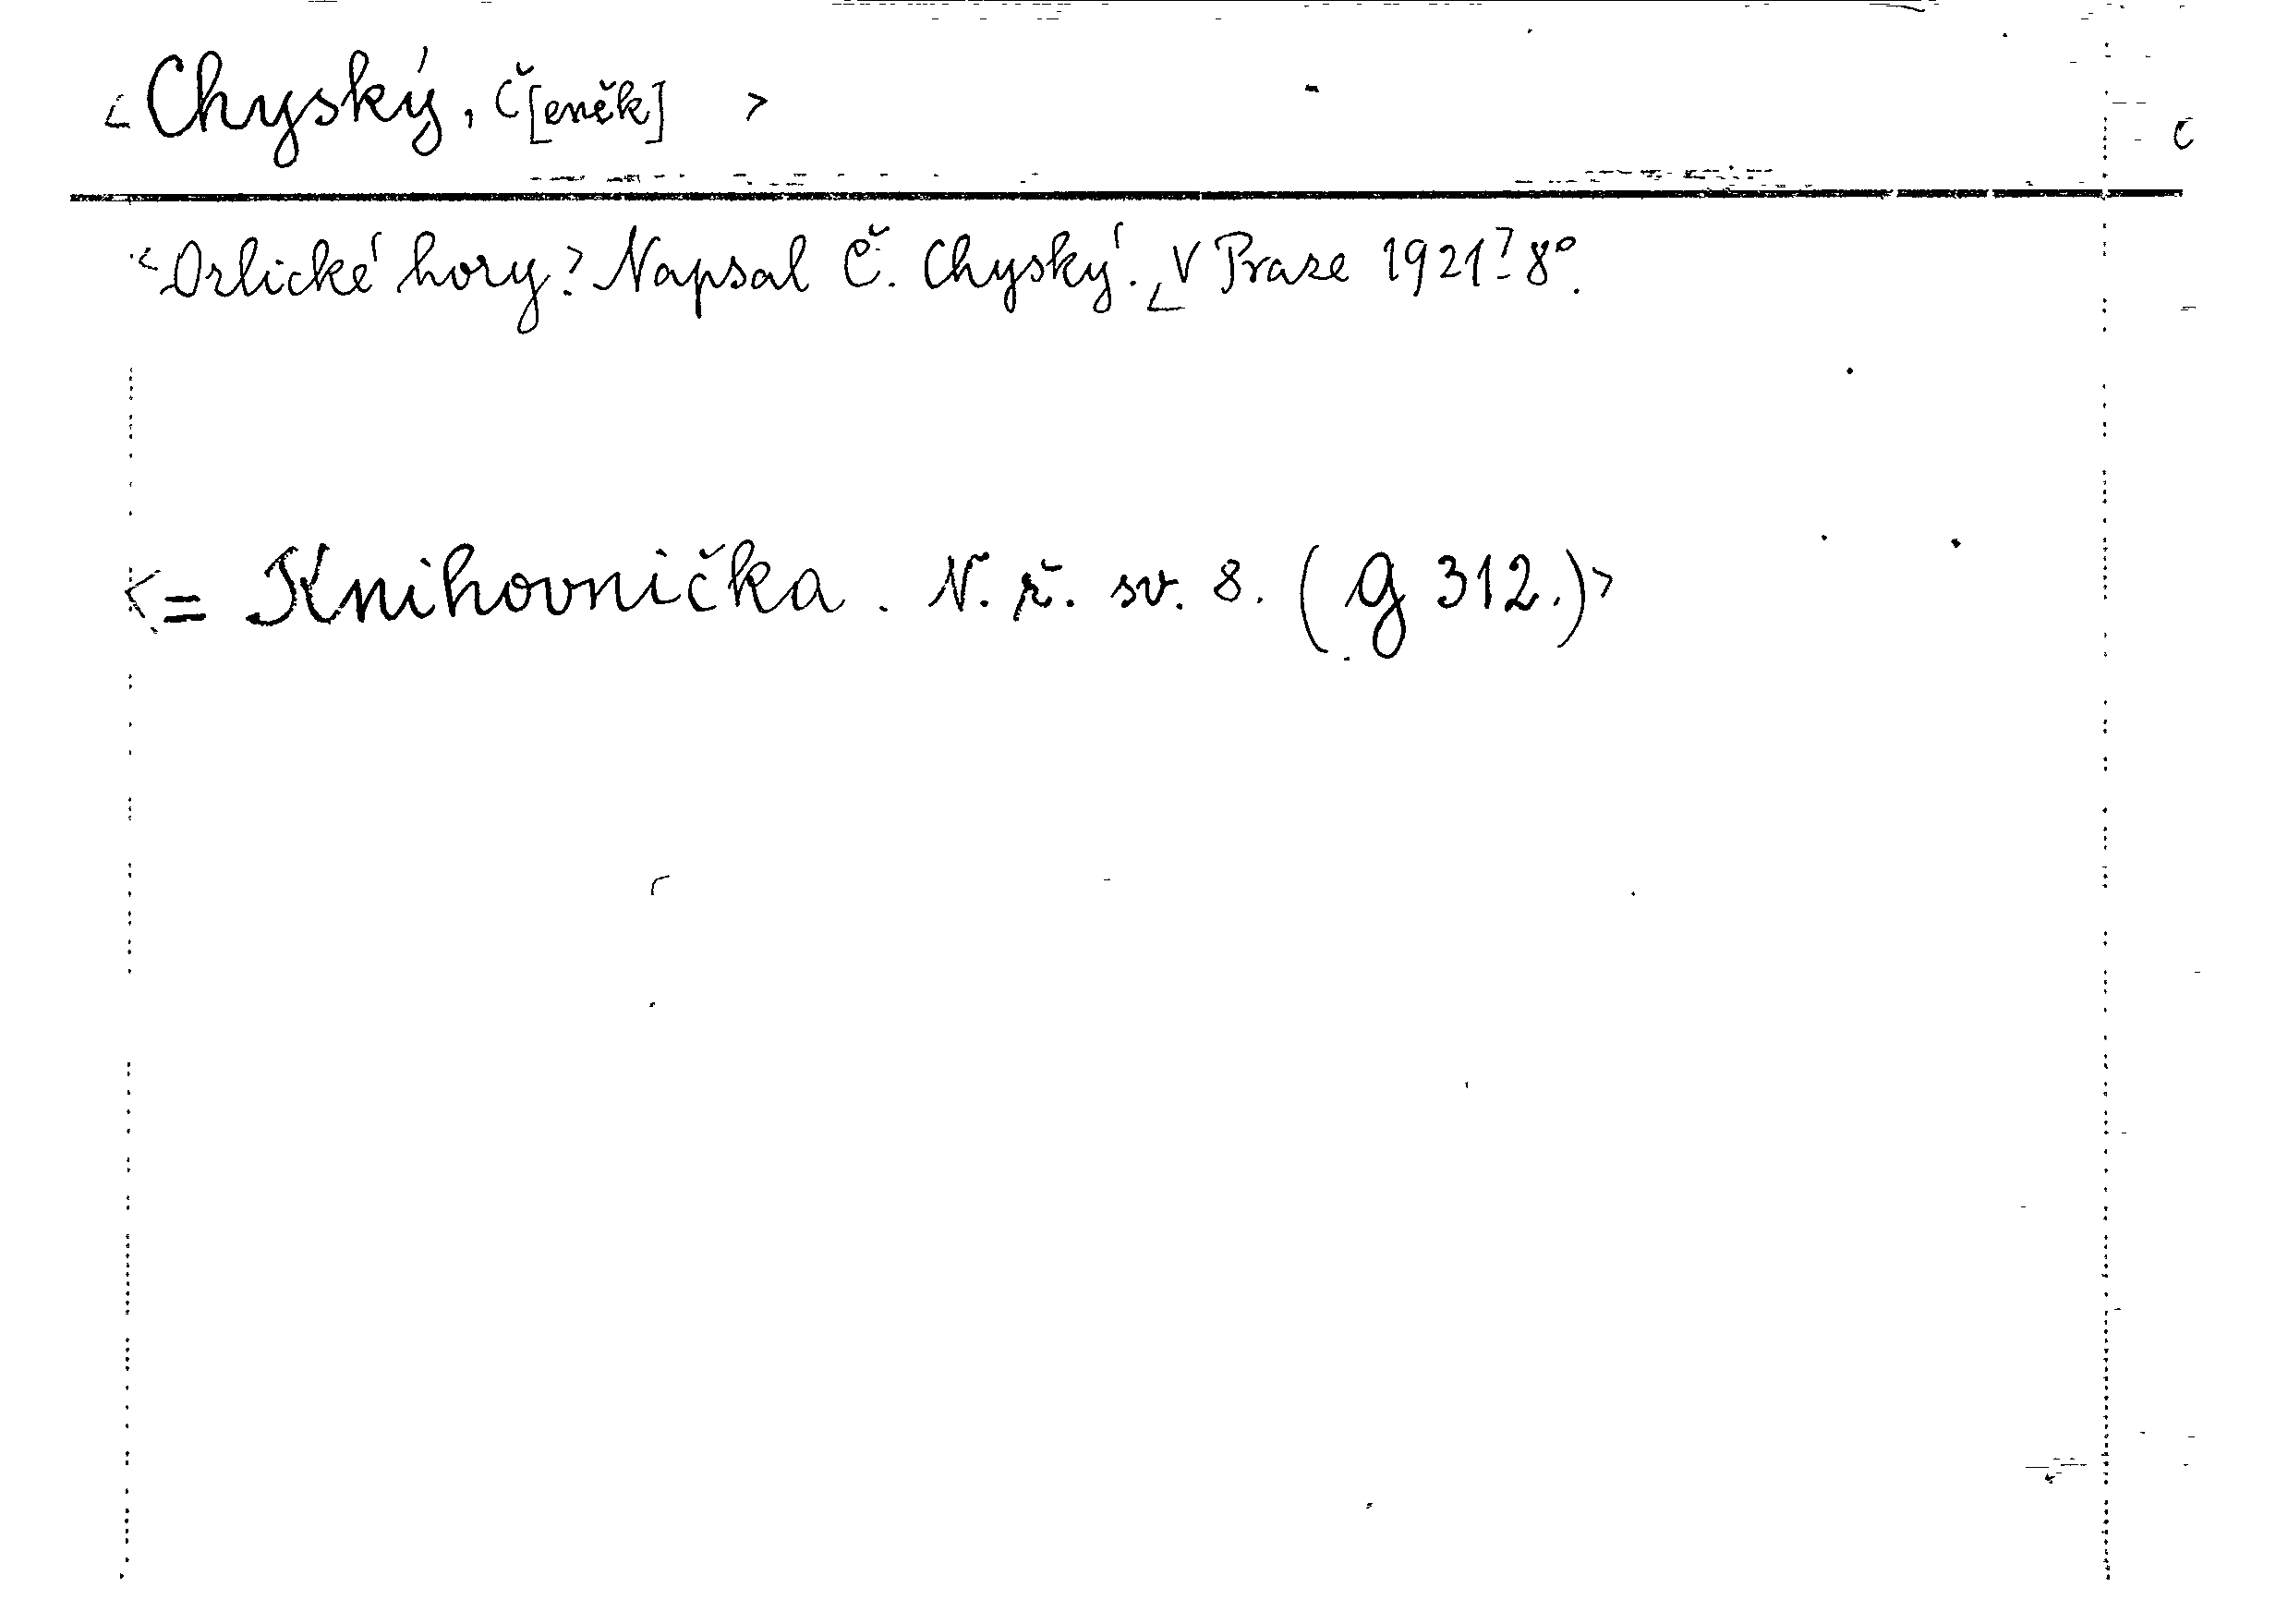 <Chyský, Č[eněk]>
<Orlické hory>. Napsal Č. Chyský. <V Praze 1921>. 8°.
<= Knihovnička. N. ř. sv. 8. (g 312.)>